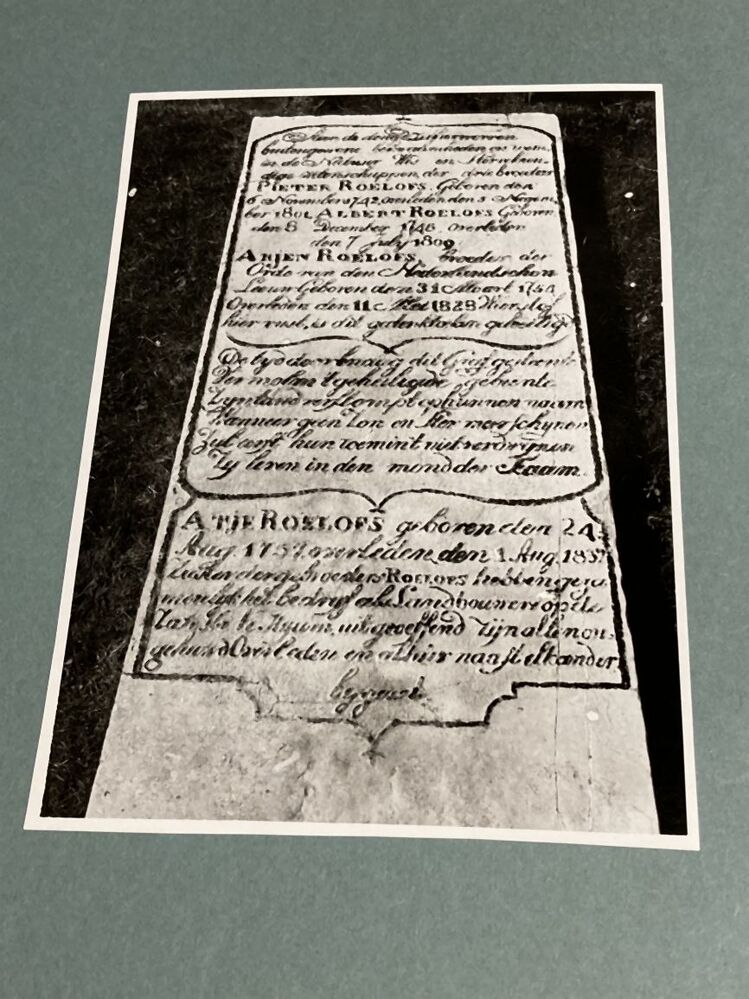 Aan de door
buitengewone bekwaamheden en
in de Natuur Wis en Sterrekun-
dige wetenschappen der drie broeders
PIETER ROELOFS. Geboren den
6 November 1742, overleden den 5 Novem
ber 1801 ALBERT ROELOFS Geboren
den 8 December 1746 overleden
den 7 July 1809
ARJEN ROELOFS, broeder der
Orde van den Nederlandschen
Leeuw Geboren den 31e Maart 1754
Overleden den 11e Mei 1828 Wier stof
hier rust, is dit gedenkteken geheiligd
De tyd doorknaag dit Graf gesteente
Der molm 't geheiligde gebeente
Zyn tand verstompt op hunnen naam
Wanneer geen Zon en Ster meer schynen
Zal eerst hun roem in 't niet verdwynen
Zy leven in den mond der Faam
ATJE ROELOFS geboren den 24
Aug. 1757, overleden den 1 Aug. 1837
ROELOFS hebben geza
menlyk het bedryf als Landbouwers op de
te Hyum, uitgeoeffend zyn allen on
gehuwd Overleden en alhier naast elkander
bygezet